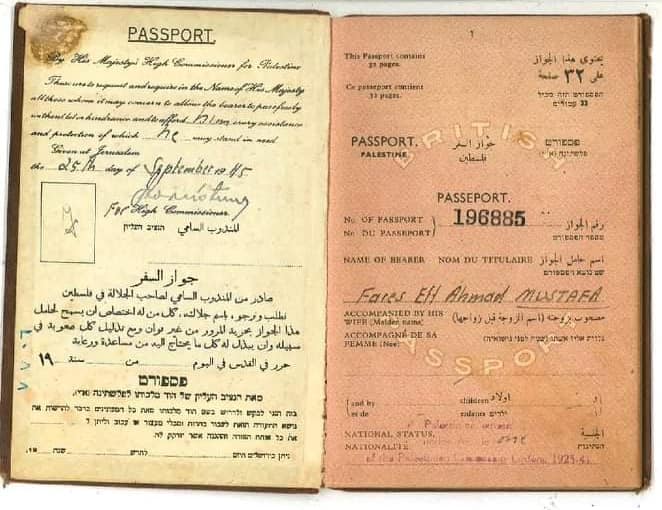 PASSPORT.
By His Majesty's High Commissioner for Palestine
These are to request and require in the Name of His Majesty
all those whom it may concern to allow the bearer to pass freely
without let or hindrance and to afford him every assistance
and protection of which he may stand in need
Given at Jerusalem
the 25th day of September 1945
For High Commissioner.
للمندوب السامي הנציב העליון
جواز السفر
صادر من المندوب السامي لصاحب الجلالة في فلسطين
نطلب ونرجو، باسم جلالته، كل من له اختصاص ان يسمح لحامل
هذا الجواز بحرية المرور من غير توان ومع تذليل كل صعوبة في
سبيله وان يبذل له كل ما يحتاج اليه من مساعدة ورعاية
حرر في القدس في اليوم من سنة ١٩
פספורט
מאת הנציב העליון של הוד מלכותו לפלשתינה (א״י).
ניתן בירושלים היום לחדש שנת 19
1
This Passport contains
32 pages.
يحتوي هذا الجواز
على ٣٢ صفحة
Ce passeport contient
32 pages.
הפספורט הזה מכיל
32 עמודים
BRITISH
PASSPORT. جواز السفر פספורט
PALESTINE. فلسطين פלשתינה (א״י)
PASSEPORT.
No. OF PASSPORT
No. DU PASSEPORT
196885
رقم الجواز
מספר הפספורט
NAME OF BEARER NOM DU TITULAIRE اسم حامل الجواز
שם נושא הפספורט
Fares Eff Ahmad MUSTAFA
ACCOMPANIED BY HIS
WIFE (Maiden name)
مصحوب بزوجته (اسم الزوجة قبل زواجها)
ACCOMPAGNÉ DE SA
FEMME (Née)
PASSPORT
and by children اولاد و
et de enfants ילדים
NATIONAL STATUS. الجنسية
NATIONALITÉ הנתינות
of the Palestinian Citizenship Orders, 1925-41